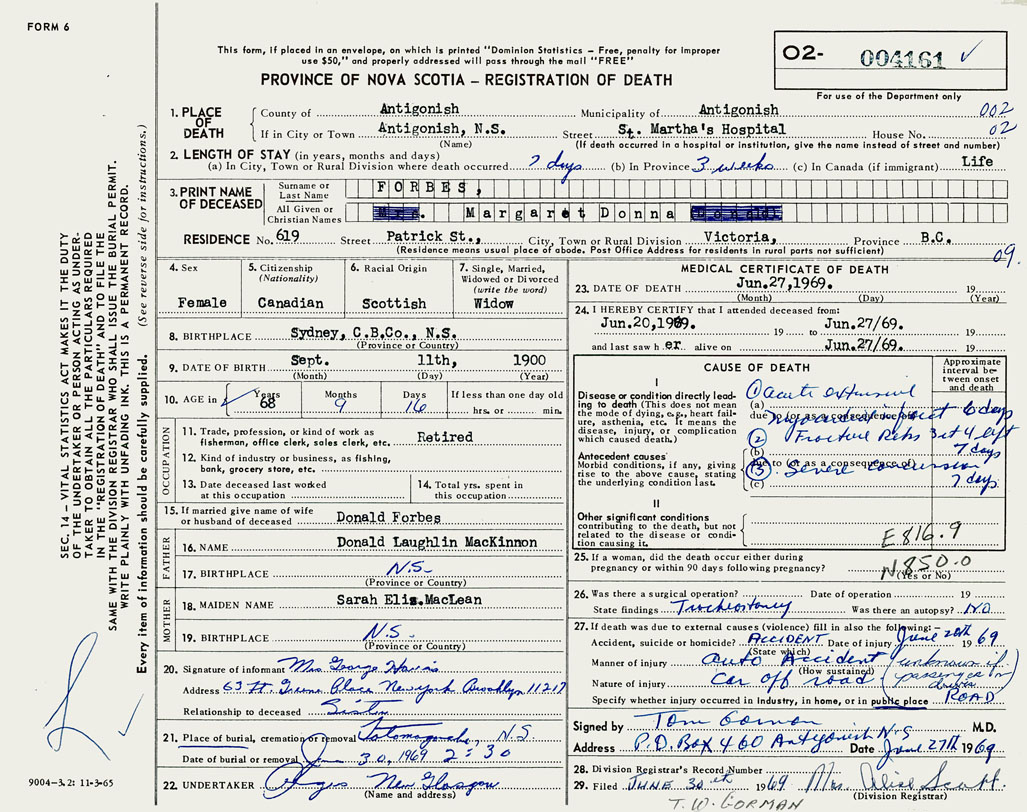 FORM 6
This form, if placed in an envelope, on which is printed "Dominion Statistics – Free, penalty for improper
use $50," and properly addressed will pass through the mail "FREE"
PROVINCE OF NOVA SCOTIA – REGISTRATION OF DEATH
O2- 004161 ✓
For use of the Department only
1. PLACE OF DEATH
County of Antigonish Municipality of Antigonish 002
If in City or Town Antigonish, N.S. Street St. Martha's Hospital House No. 02
(Name) (If death occurred in a hospital or institution, give the name instead of street and number)
2. LENGTH OF STAY (in years, months and days)
(a) In City, Town or Rural Division where death occurred 7 days (b) In Province 3 weeks (c) In Canada (if immigrant) Life
3. PRINT NAME OF DECEASED
Surname or Last Name FORBES,
All Given or Christian Names Margaret Donna
RESIDENCE No. 619 Street Patrick St., City, Town or Rural Division Victoria, Province B.C.
(Residence means usual place of abode. Post Office Address for residents in rural parts not sufficient)
09.
4. Sex Female
5. Citizenship (Nationality) Canadian
6. Racial Origin Scottish
7. Single, Married, Widowed or Divorced (write the word) Widow
8. BIRTHPLACE Sydney, C.B.Co., N.S.
(Province or Country)
9. DATE OF BIRTH Sept. 11th, 1900
(Month) (Day) (Year)
10. AGE in Years 68 Months 9 Days 16 If less than one day old hrs. or min.
OCCUPATION
11. Trade, profession, or kind of work as fisherman, office clerk, sales clerk, etc. Retired
12. Kind of industry or business, as fishing, bank, grocery store, etc.
13. Date deceased last worked at this occupation
14. Total yrs. spent in this occupation
15. If married give name of wife or husband of deceased Donald Forbes
FATHER
16. NAME Donald Laughlin MacKinnon
17. BIRTHPLACE N.S.
(Province or Country)
MOTHER
18. MAIDEN NAME Sarah Eliz.MacLean
19. BIRTHPLACE N.S.
(Province or Country)
20. Signature of informant Mrs. George
Address 63 Ft. Greene Place New York Brooklyn 11217
Relationship to deceased Sister
21. Place of burial, cremation or removal Tatamagouche, N.S.
Date of burial or removal June 30, 1969 2:30
22. UNDERTAKER New Glasgow
(Name and address)
MEDICAL CERTIFICATE OF DEATH
23. DATE OF DEATH Jun.27,1969. 19
(Month) (Day) (Year)
24. I HEREBY CERTIFY that I attended deceased from:
Jun.20,1969. 19 to Jun.27/69. 19
and last saw h er alive on Jun.27/69. 19
CAUSE OF DEATH
Approximate interval between onset and death
I
Disease or condition directly leading to death (This does not mean the mode of dying, e.g., heart failure, asthenia, etc. It means the disease, injury, or complication which caused death.)
(a) ① acute extensive
due to (or as a consequence of)
myocardial infarct 6 days
② Fracture Ribs 3 et 4 left
(b) 7 days
Antecedent causes
Morbid conditions, if any, giving rise to the above cause, stating the underlying condition last.
due to (or as a consequence of)
③. Severe concussion
(c) 7 days
II
Other significant conditions contributing to the death, but not related to the disease or condition causing it.
E816.9
25. If a woman, did the death occur either during pregnancy or within 90 days following pregnancy?
N850.0
(Yes or No)
26. Was there a surgical operation? Date of operation 19
State findings Tracheostomy Was there an autopsy? NO
27. If death was due to external causes (violence) fill in also the following:–
Accident, suicide or homicide? ACCIDENT Date of injury June 20th 1969
(State which)
Manner of injury Auto Accident (unknown if passenger or driver)
(How sustained)
Nature of injury Car off road
Specify whether injury occurred in industry, in home, or in public place ROAD
Signed by Tom Gorman M.D.
Address P.O. Box 460 Antigonish N.S Date June 27th 1969
28. Division Registrar's Record Number
29. Filed JUNE 30th 1969 Mrs. Alice Scott
(Division Registrar)
T.W. GORMAN
SEC. 14 – VITAL STATISTICS ACT MAKES IT THE DUTY
OF THE UNDERTAKER OR PERSON ACTING AS UNDER-
TAKER TO OBTAIN ALL THE PARTICULARS REQUIRED
IN THE "REGISTRATION OF DEATH" AND TO FILE THE
SAME WITH THE DIVISION REGISTRAR WHO SHALL ISSUE THE BURIAL PERMIT.
WRITE PLAINLY WITH UNFADING INK. THIS IS A PERMANENT RECORD.
Every item of information should be carefully supplied. (See reverse side for instructions.)
9004–3.2: 11-3-65